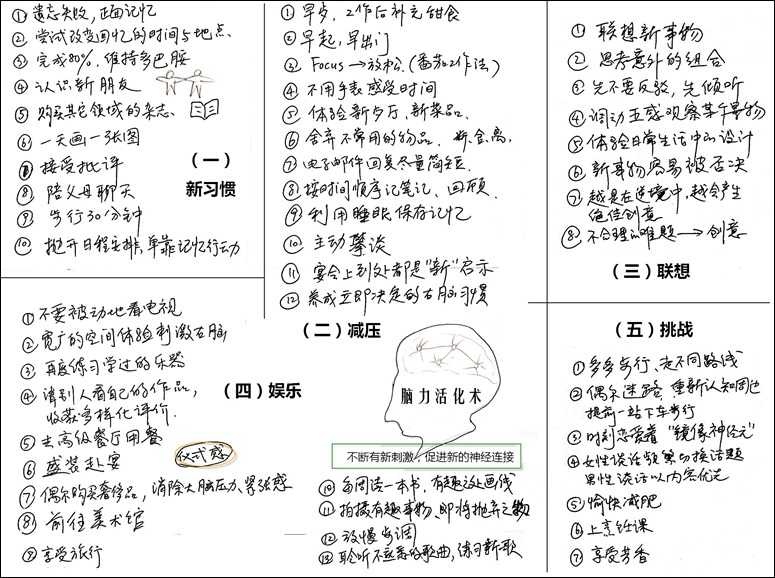 ①遗忘失败，正面记忆
②尝试改变回忆的时间与地点
③完成80%，维持多巴胺
④认识新朋友
⑤购买其它领域的杂志
⑥一天画一张图
⑦接受批评
⑧陪父母聊天
⑨步行30分钟
⑩抛开日程安排，单靠记忆行动
（一）
新习惯
①早点，工作后补充甜食
②早起，早出门
③Focus→放松（番茄工作法）
④不用手表感受时间
⑤体验新餐厅、新菜品.
⑥舍弃不常用的物品. 断.舍.离.
⑦电子邮件回复尽量简短.
⑧按时间顺序记笔记、回顾.
⑨利用睡眠保存记忆
⑩主动攀谈
⑪宴会上到处都是"新"启示
⑫养成立即决定的右脑习惯
（二）减压
①联想新事物
②思考意外的组合
③先不要反驳，先倾听
④调动五感观察某件事物
⑤体会日常生活中的设计
⑥新事物容易被否决
⑦越是在逆境中，越会产生
绝佳创意
⑧不合理的难题→创意
（三）联想
①不要被动地看电视
②宽广的空间体验刺激右脑
③再度练习学过的乐器
④请别人看自己的作品，
收获多样化评价.
⑤去高级餐厅用餐
⑥盛装赴宴
仪式感
⑦偶尔购买奢侈品，消除大脑压力、紧张感
⑧前往美术馆
⑨享受旅行
（四）娱乐
脑力活化术
不断有新刺激，促进新的神经连接
⑩每周读一本书，有趣处画线
⑪拍摄有趣事物、即将抛弃之物
⑫放慢步调
⑬聆听不熟悉的歌曲，练习新歌
（五）挑战
①多多步行、走不同路线
②偶尔迷路，重新认知周边
提前一站下车步行
③时刻恋爱着"镜像神经元"
④女性谈话频繁切换话题
男性谈话以内容优先
⑤愉快减肥
⑥上烹饪课
⑦享受芳香